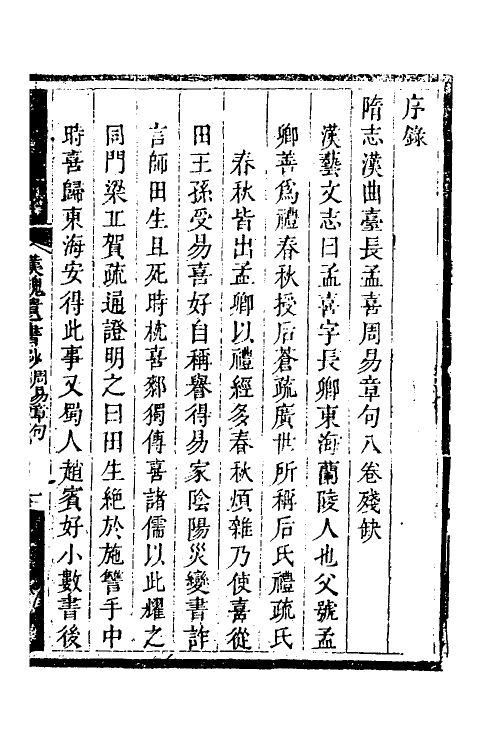 序錄
隋志漢曲臺長孟喜周易章句八卷殘缺
漢藝文志曰孟喜字長卿東海蘭陵人也父號孟
卿善爲禮春秋授后蒼疏廣世所稱后氏禮疏氏
春秋皆出孟卿以禮經多春秋煩雜乃使喜從
田王孫受易喜好自稱譽得易家陰陽災變書詐
言師田生且死時枕喜厀獨傳喜諸儒以此耀之
同門梁丘賀疏通證明之曰田生絶於施讐手中
時喜歸東海安得此事又蜀人趙賓好小數書後
漢魏遺書鈔
周易章句